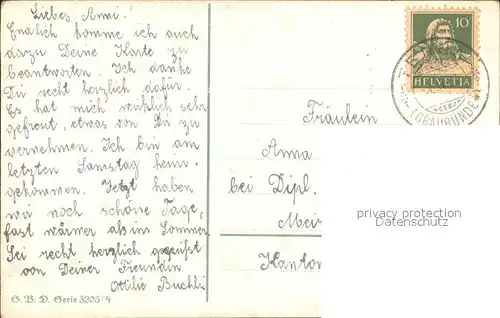 Liebes Anni!
Endlich komme ich auch
dazu Deine Karte zu
beantworten. Ich danke
Dir recht herzlich dafür.
Es hat mich wirklich sehr
gefreut, etwas von Dir zu
vernehmen. Ich bin am
letzten Samstag heim-
gekommen. Jetzt haben
wir noch schöne Tage,
fast wärmer als im Sommer.
Sei recht herzlich gegrüsst
von Deiner Freundin
Ottilie Buchli
S. V. D. Serie 3205/4
10
HELVETIA
(GRAUBÜNDEN)
Fräulein
Anna
bei Dipl.
Mei
Kanton
privacy protection
watermark